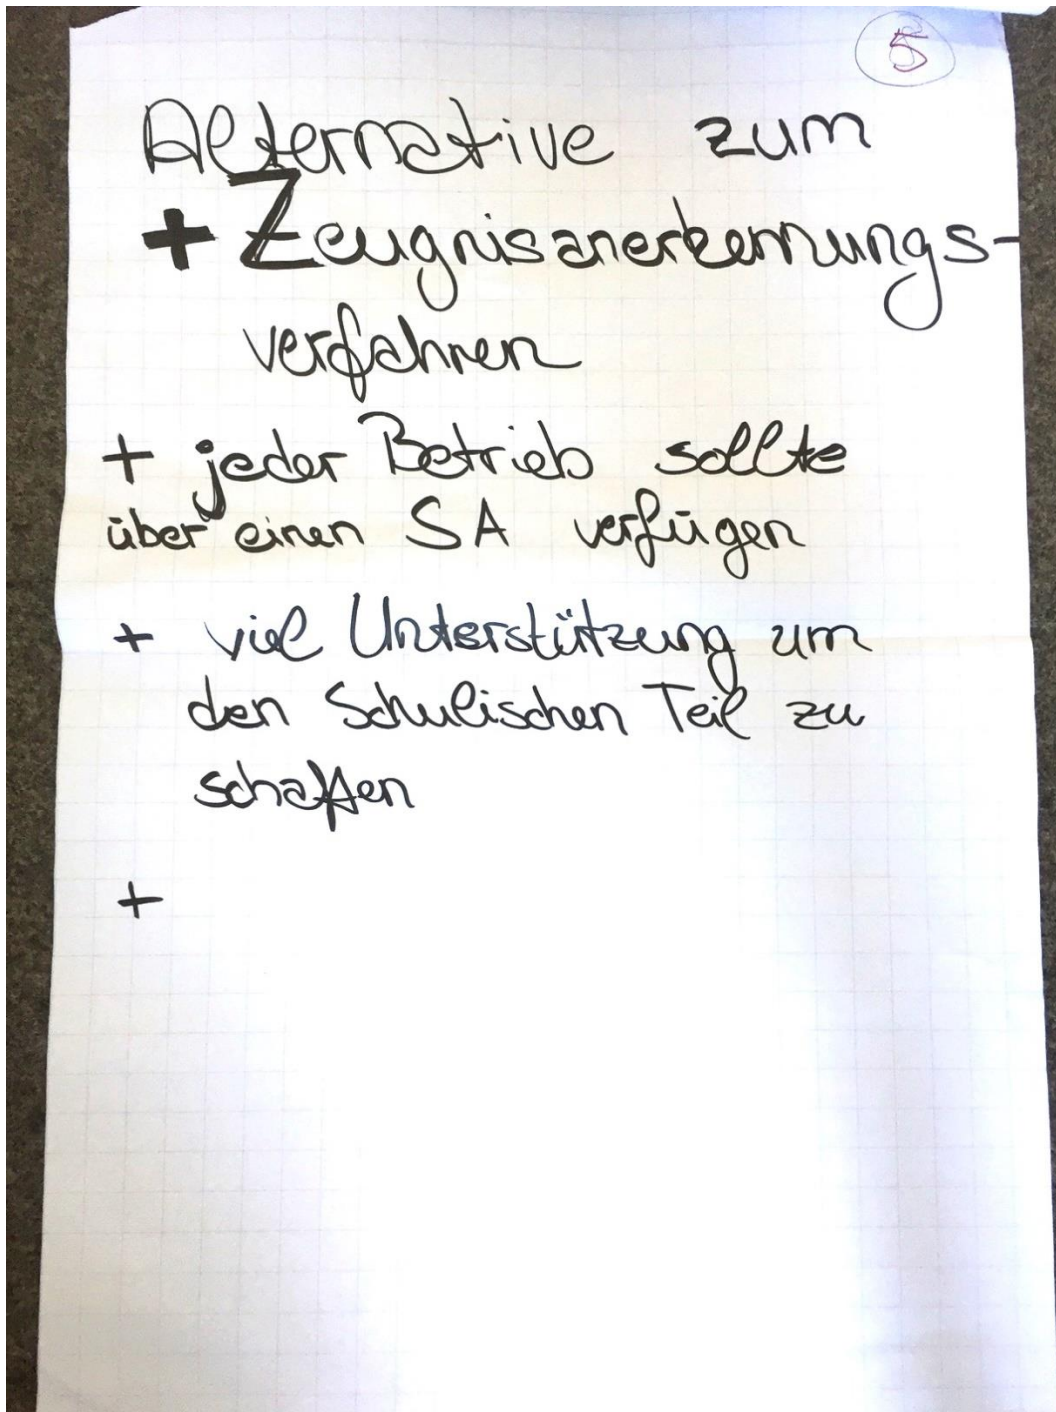 5
Alternative zum
+ Zeugnisanerkennungs-
verfahren
+ jeder Betrieb sollte
über einen SA verfügen
+ viel Unterstützung um
den Schulischen Teil zu
schaffen
+